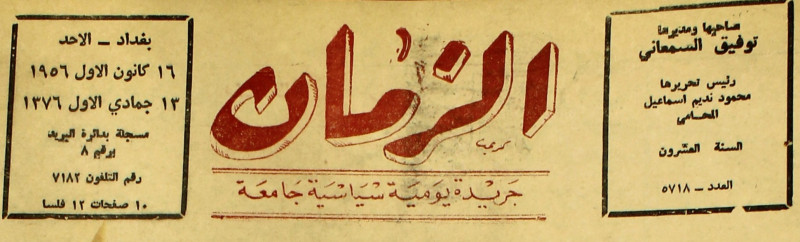 صاحبها ومديرها
توفيق السمعاني
رئيس تحريرها
محمود نديم اسماعيل
المحامي
السنة العشرون
العدد - ٥٧١٨
الزمان
جريدة يومية سياسية جامعة
بغداد - الاحد
١٦ كانون الاول ١٩٥٦
١٣ جمادي الاول ١٣٧٦
مسجلة بدائرة البريد
برقم ٨
رقم التلفون ٧١٨٢
١٠ صفحات ١٢ فلسا